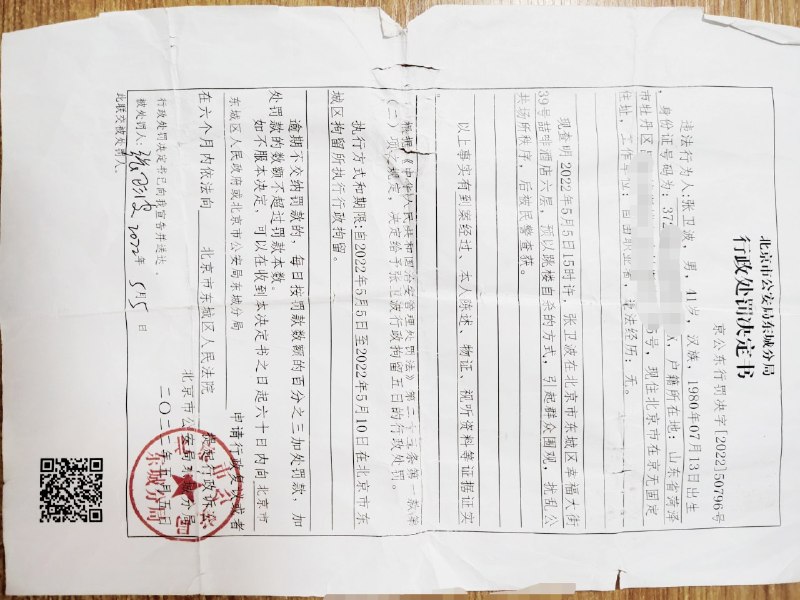 北京市公安局东城分局
行政处罚决定书
京公东行罚决字[2022]50796号
违法行为人:张卫波,男,41岁,汉族,1980年07月13日出生
,身份证号码为:37 X,户籍所在地:山东省菏泽
市牡丹区 5号,现住北京市在京无固定
住址,工作单位:自由职业者,违法经历:无。
现查明2022年5月5日15时许,张卫波在北京市东城区幸福大街
39号喆啡酒店六层,预以跳楼自杀的方式,引起群众围观,扰乱公
共场所秩序,后被民警查获。
以上事实有到案经过、本人陈述、物证、视听资料等证据证实
根据《中华人民共和国治安管理处罚法》第二十三条第一款第
(二)项之规定,决定给予张卫波行政拘留五日的行政处罚。
执行方式和期限:自2022年5月5日至2022年5月10日在北京市东
城区拘留所执行行政拘留。
逾期不交纳罚款的,每日按罚款数额的百分之三加处罚款,加
处罚款的数额不超过罚款本数。
如不服本决定,可以在收到本决定书之日起六十日内向北京市
东城区人民政府或北京市公安局东城分局 申请行政复议或者
在六个月内依法向 北京市东城区人民法院 提起行政诉讼
北京市公安局东城分局
二〇二二年五月五日
行政处罚决定书已向我宣告并送达。
被处罚人: 张卫波 2022年 5月5日
此联交被处罚人